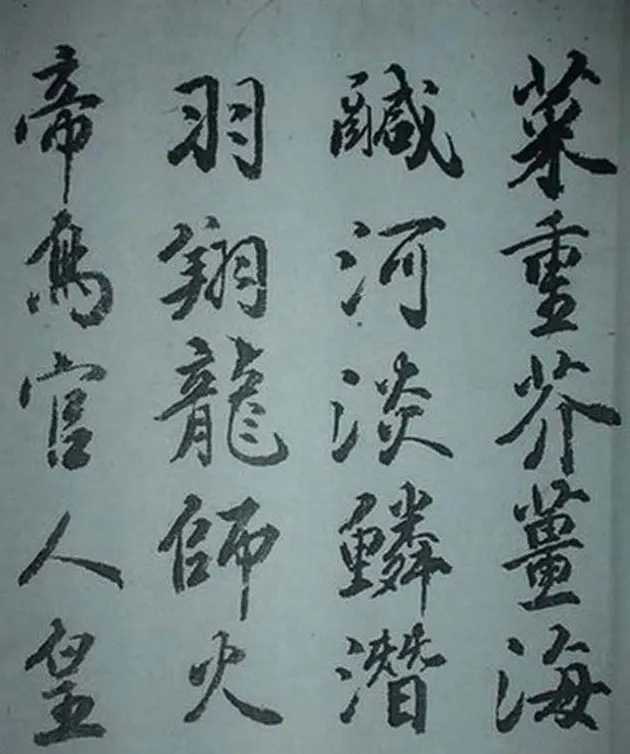 菜重芥薑海
鹹河淡鱗潛
羽翔龍師火
帝鳥官人皇